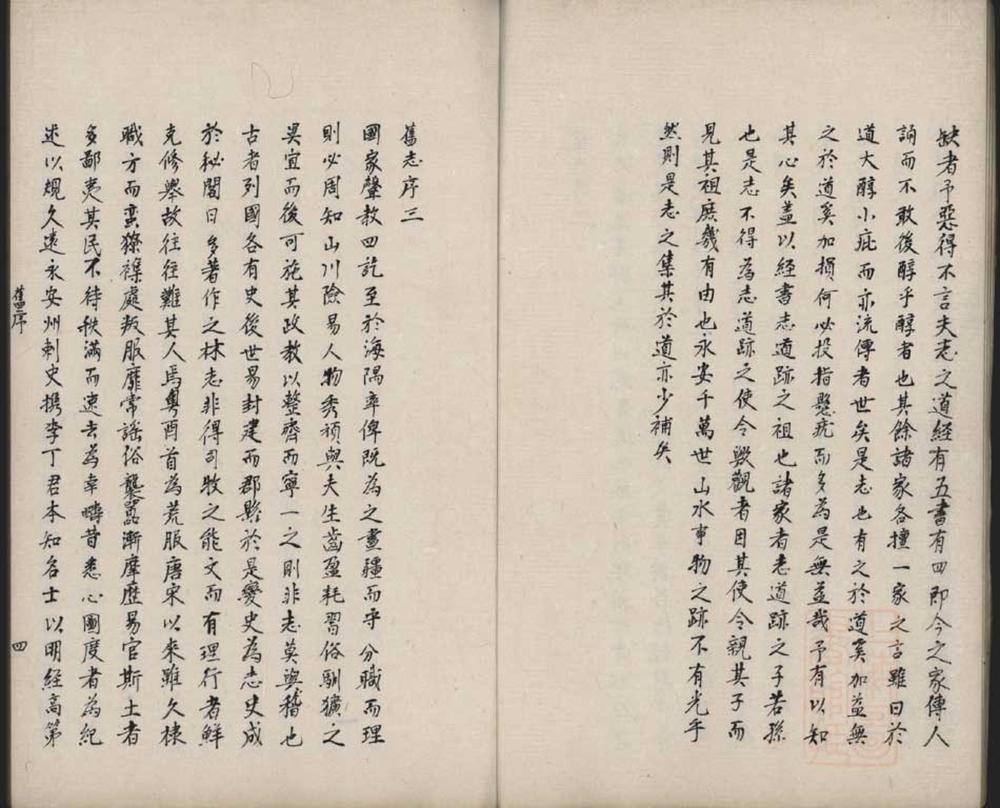 缺者予惡得不言夫志之道經有五書有四即今之家傳人
誦而不敢後醇乎醇者也其餘諸家各擅一家之言雖曰於
道大醇小疵而亦流傳者世矣是志也有之於道奚加益無
之於道奚加損何必投指懸疣而多為是無益哉予有以知
其心矣蓋以經書志道跡之祖也諸家者志道跡之子若孫
也是志不得為志道跡之使令歟觀者因其使令親其子而
見其祖庶幾有由也永安千萬世山水事物之跡不有光乎
然則是志之集其於道亦少補矣
舊志序三
國家聲教四訖至於海隅率俾既為之畫疆而守分職而理
則必周知山川險易人物秀頑與夫生齒盈耗習俗馴獷之
異宜而後可施其政教以整齊而寧一之則非志莫與稽也
古者列國各有史後世易封建而郡縣於是變史為志史成
於秘閣日多著作之林志非得司牧之能文而有理行者鮮
克修舉故往往難其人焉粵酉首為荒服唐宋以來雖久隸
職方而蠻獠襍處叛服靡常謠俗襲嚚漸摩歷易官斯土者
多鄙夷其民不待秩滿而速去為幸疇昔悉心圖度者為紀
述以規久遠永安州刺史攜李丁君本知名士以明經高第
舊序
四